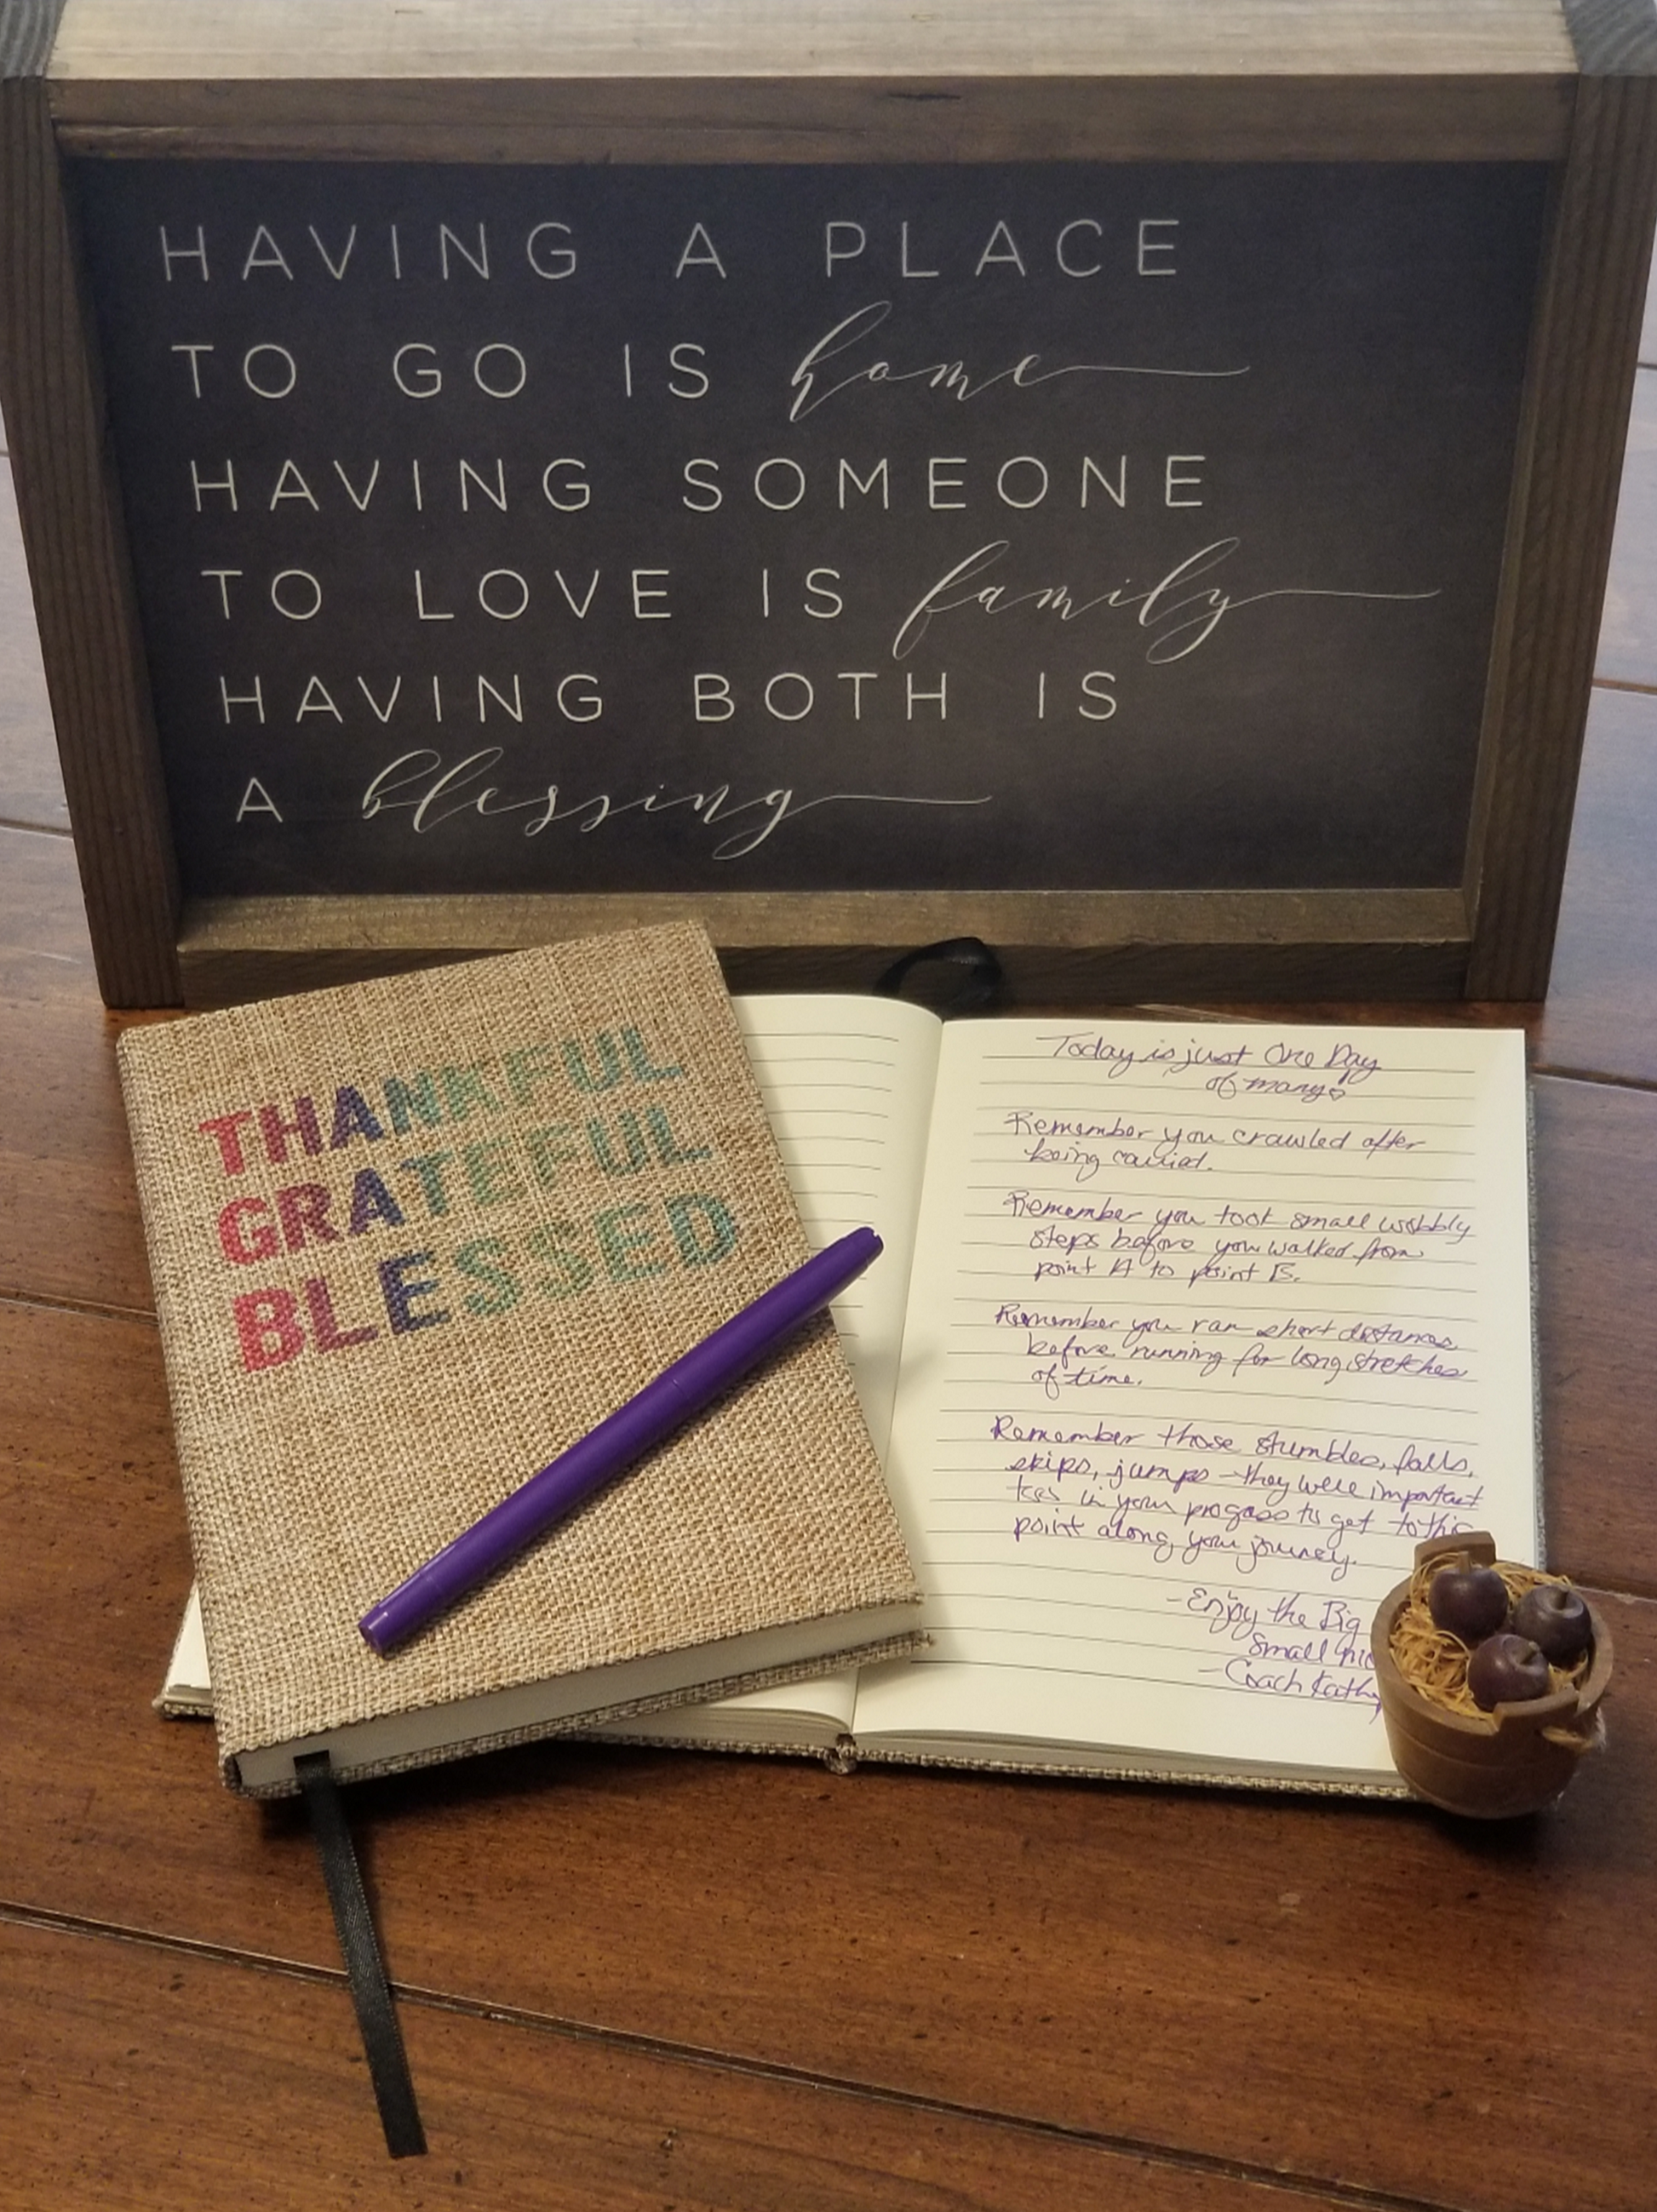 HAVING A PLACE
TO GO IS home
HAVING SOMEONE
TO LOVE IS family
HAVING BOTH IS
A blessing
THANKFUL
GRATEFUL
BLESSED
Today is just One Day
of many♡
Remember you crawled after
being carried.
Remember you took small wobbly
steps before you walked from
point A to point B.
Remember you ran short distances
before running for long stretches
of time.
Remember those stumbles, falls,
skips, jumps - they were important
in your progress to get to this
point along your journey.
- Enjoy the Big
Small
- Coach Kathy